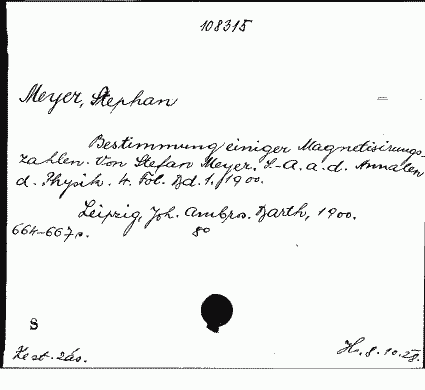 108315
Meyer, Stephan
Bestimmung einiger Magnetisirungs-
zahlen. Von Stefan Meyer. S.-A. a. d. Annalen
d. Physik. 4. Fol. Bd. 1. 1900.
Leipzig, Joh. Ambros. Barth, 1900.
664-667 s. 8°
S
Hr. 8.10.28.